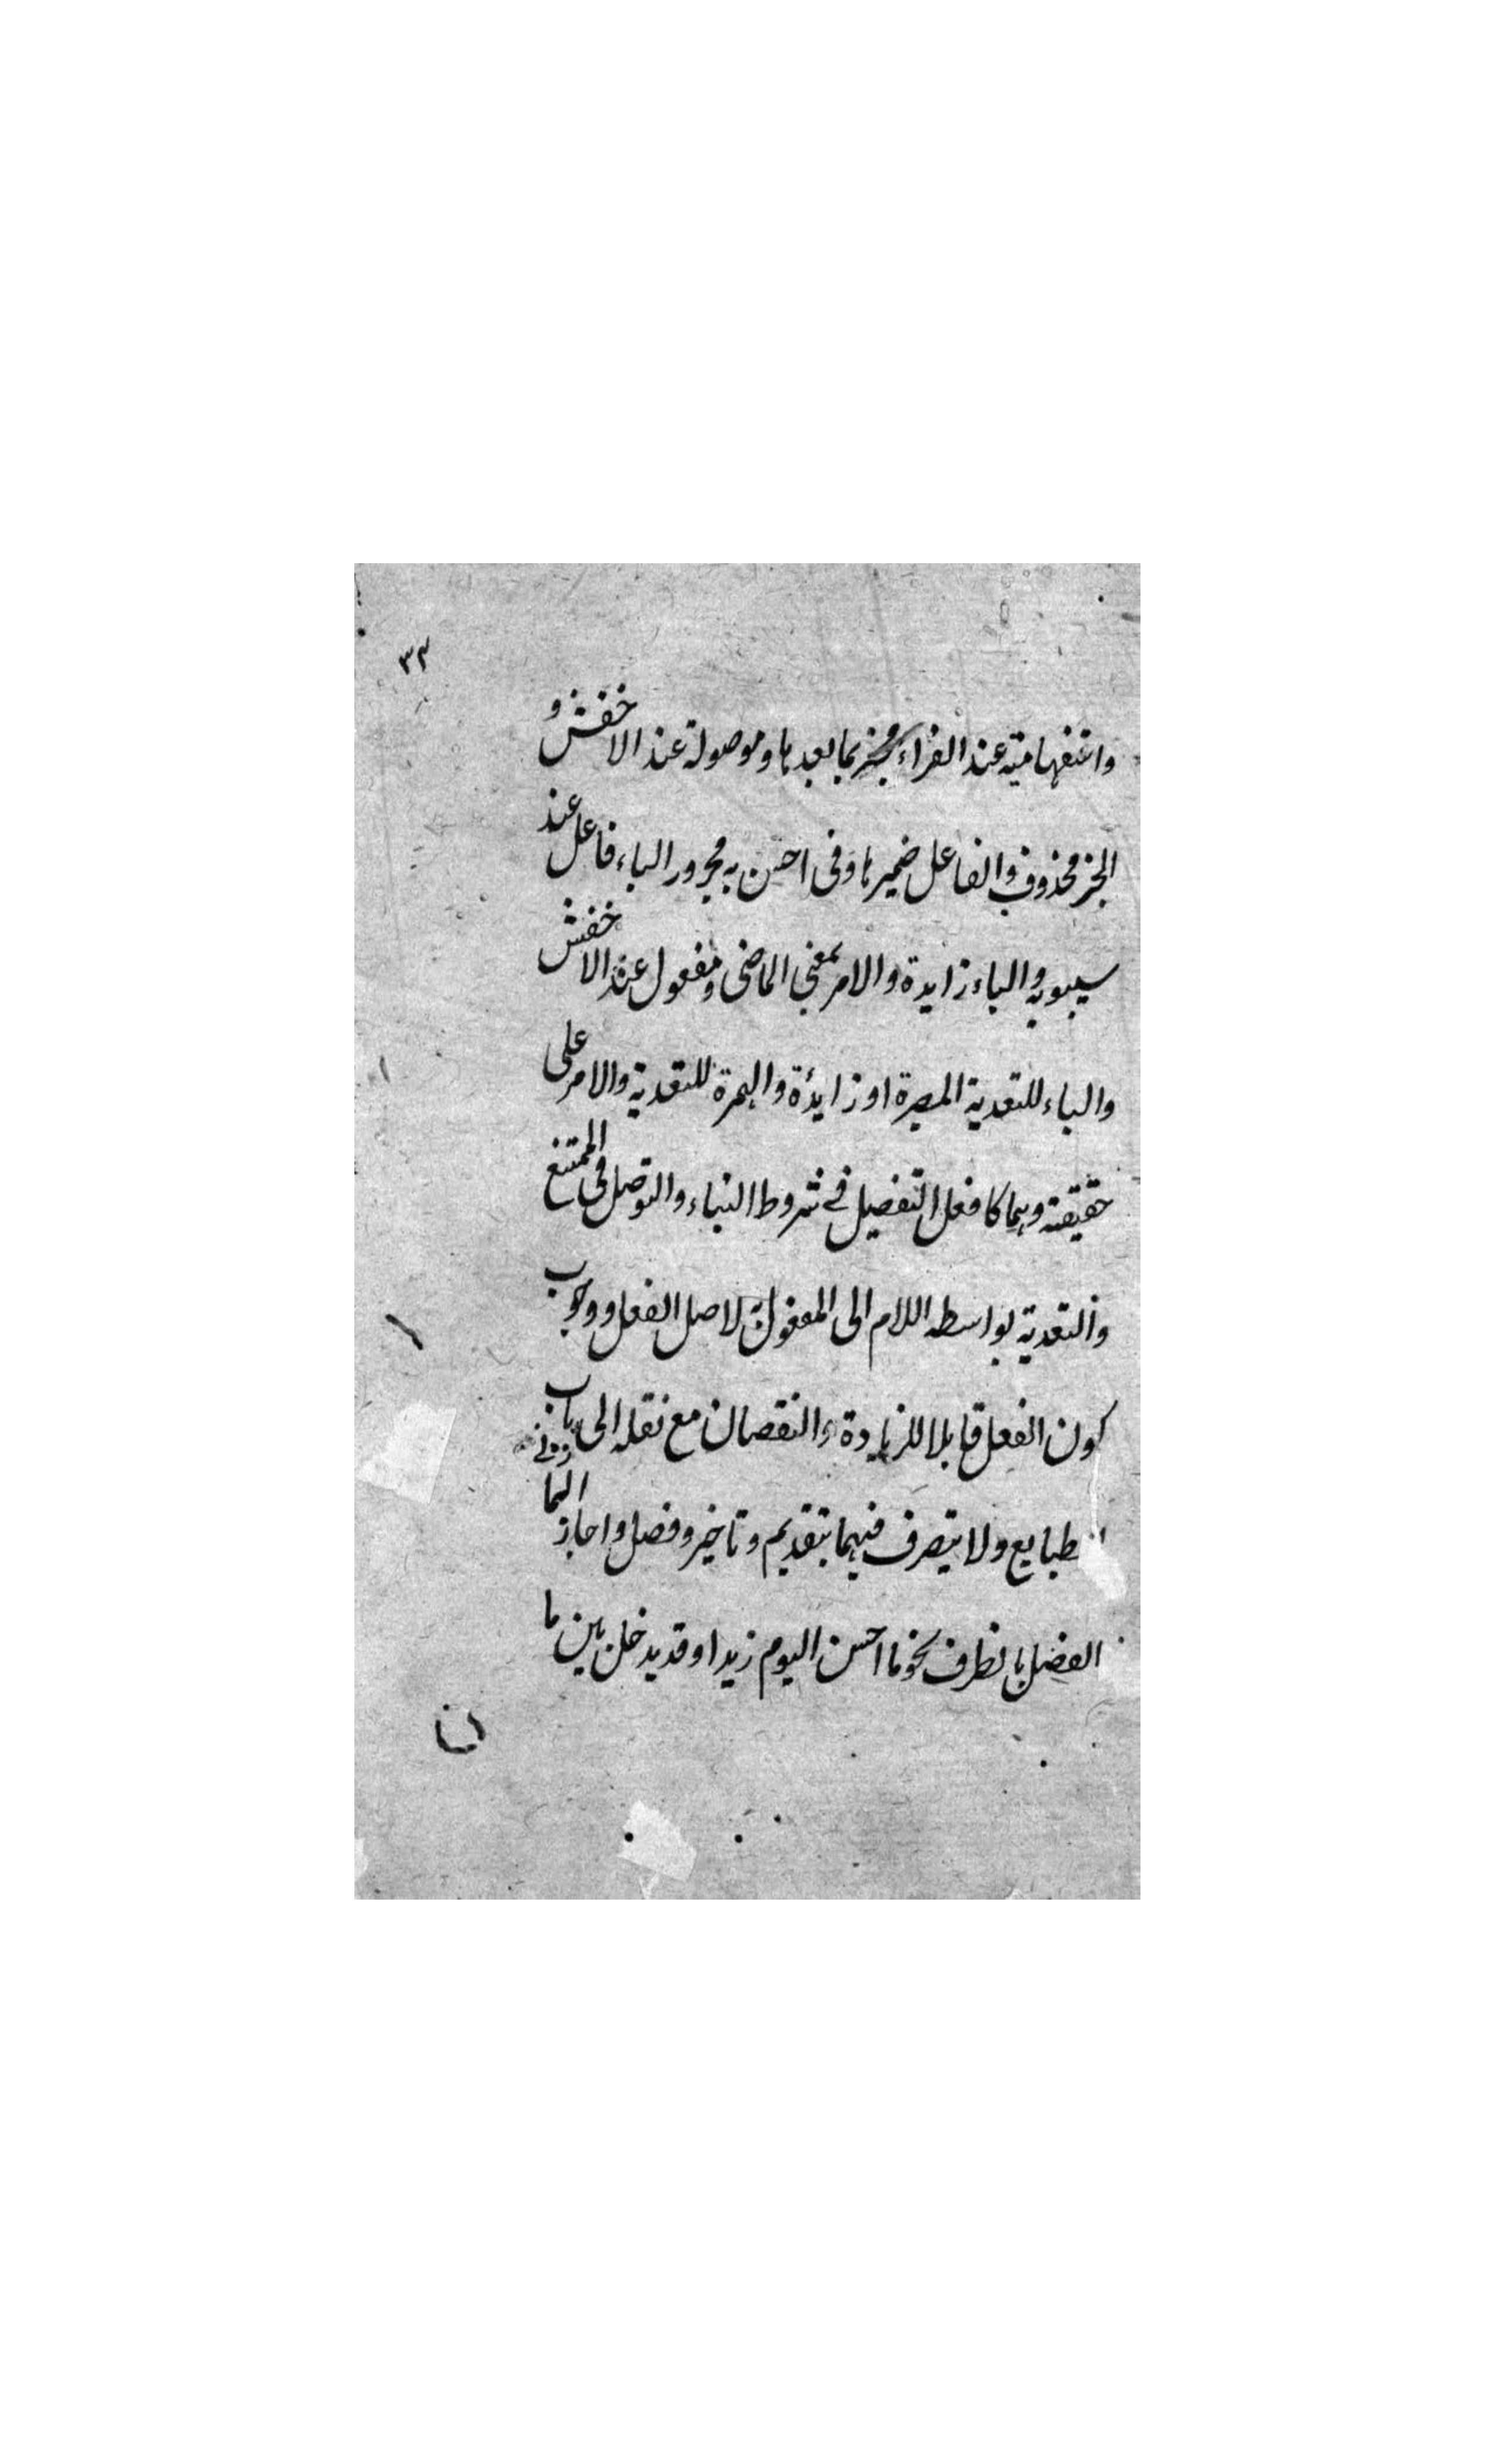 ٣٣
واستفهامية عند الفراء مخبر بما بعدها وموصولة عند الاخفش و
الخبر محذوف والفاعل ضميرها وفى احسن به مجرور الباء فاعل عند
سيبويه والباء زايدة والامر بمعنى الماضى ومفعول عند الاخفش
والباء للتعدية المصيرة او زايدة والهمزة للتعدية والامر على
حقيقته وهما كافعل التفضيل فى شروط البناء والتوصل فى الممتنع
والتعدية بواسطه اللام الى المفعول به لاصل الفعل ووجوب
كون الفعل قابلا للزيادة والنقصان مع نقله الى باب
الطبايع ولا يتصرف فيهما بتقديم وتاخير وفصل واجاز الما
زنى
الفصل بالظرف نحو ما احسن اليوم زيدا وقد يدخل بين ما